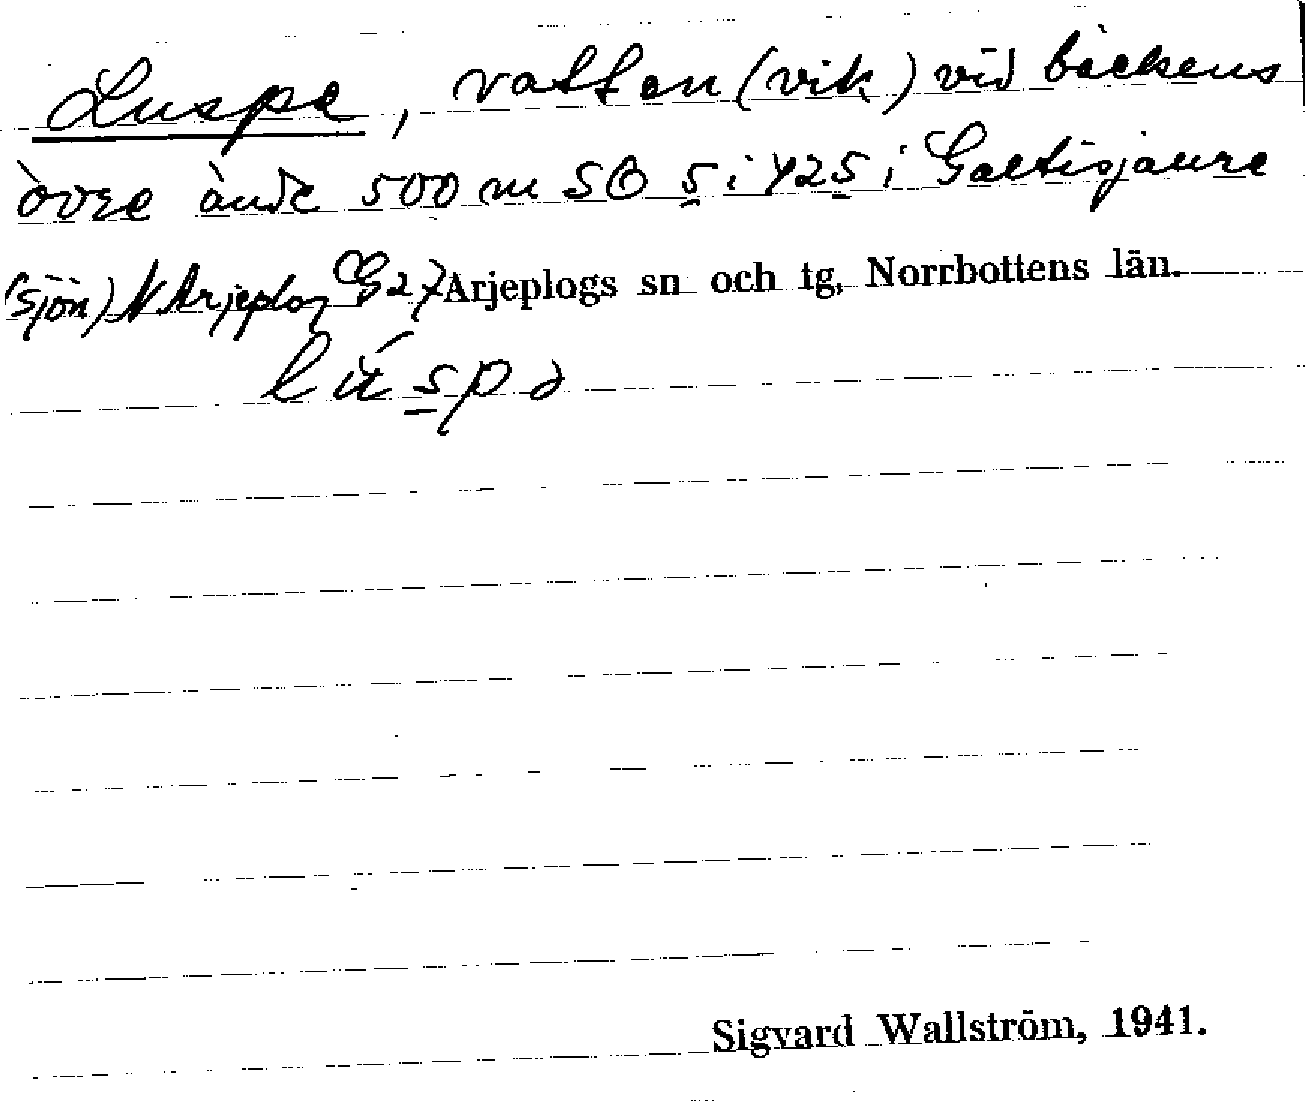 Luspe, vatten (vik) vid bäckens
övre ände 500 m SO 5 i 425 i Galtisjaure
(sjön) N Arjeplog G27 Arjeplogs sn och tg, Norrbottens län.
lú̈spə
Sigvard Wallström, 1941.